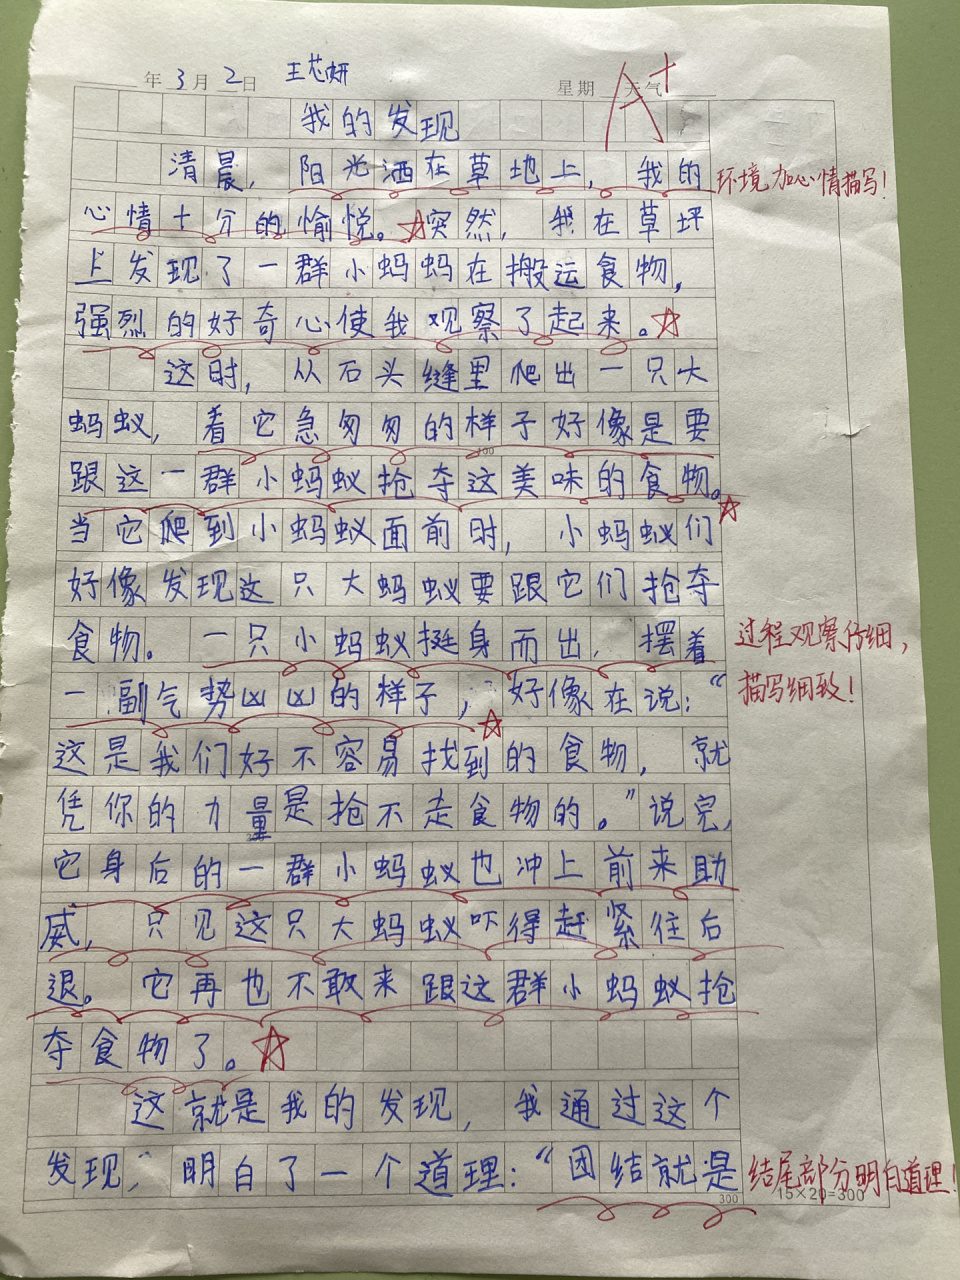 年 3月 2日 王芯妍 星期 天气 A+
我的发现
清晨，阳光洒在草地上，我的 环境加心情描写！
心情十分的愉悦。突然，我在草坪
上发现了一群小蚂蚂在搬运食物，
强烈的好奇心使我观察了起来。
这时，从石头缝里爬出一只大
蚂蚁，看它急匆匆的样子好像是要
100
跟这一群小蚂蚁抢夺这美味的食物。
当它爬到小蚂蚁面前时，小蚂蚁们
好像发现这只大蚂蚁要跟它们抢夺
食物。一只小蚂蚁挺身而出，摆着 过程观察仔细，
一副气势凶凶的样子，好像在说：“ 描写细致！
这是我们好不容易找到的食物，就
凭你的力量是抢不走食物的。”说完，
它身后的一群小蚂蚁也冲上前来助
威，只见这只大蚂蚁吓得赶紧往后
退。它再也不敢来跟这群小蚂蚁抢
夺食物了。
这就是我的发现，我通过这个
发现，明白了一个道理：“团结就是 结尾部分明白道理！
300 15×20=300